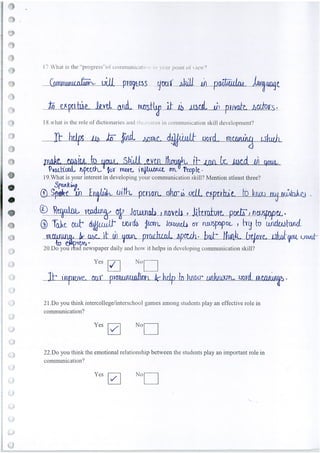 17.What is the "progress"of communication in your point of view?
Communication will progress your skill in particular language
to expertise level and mostly it is used in private sectors.
18.what is the role of dictionaries and thesaurus in communication skill development?
It helps us to find some difficult word meaning which
make easier to your skill even though it can be used in your
Practical speech for more influence on People.
19.What is your interest in developing your communication skill? Mention atleast three?
Speaking
① in English with person who is well expertise to know my mistakes.
② Regular reading of Journals, novels, literature poets, newspaper.
③ Take out difficult words from novels or newspaper, try to understand
meaning & use it in your practical speech. but think before what you want
to express.
20.Do you read newspaper daily and how it helps in developing communication skill?
Yes ✓ No
It improve our pronunciation & help to know unknown word meanings.
21.Do you think intercollege/interschool games among students play an effective role in
communication?
Yes ✓ No
22.Do you think the emotional relationship between the students play an important role in
communication?
Yes ✓ No